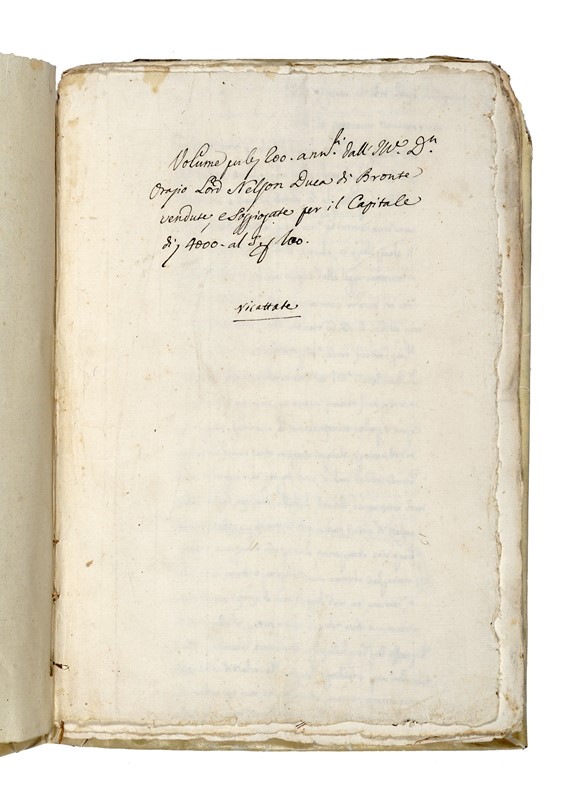 Volume per 200. ann.li dall' Ill.e D.n
Orazio Lord Nelson Duca di Bronte
vendute, e soggiogate per il Capitale
di 4000. al 5 per 100.
ricattate